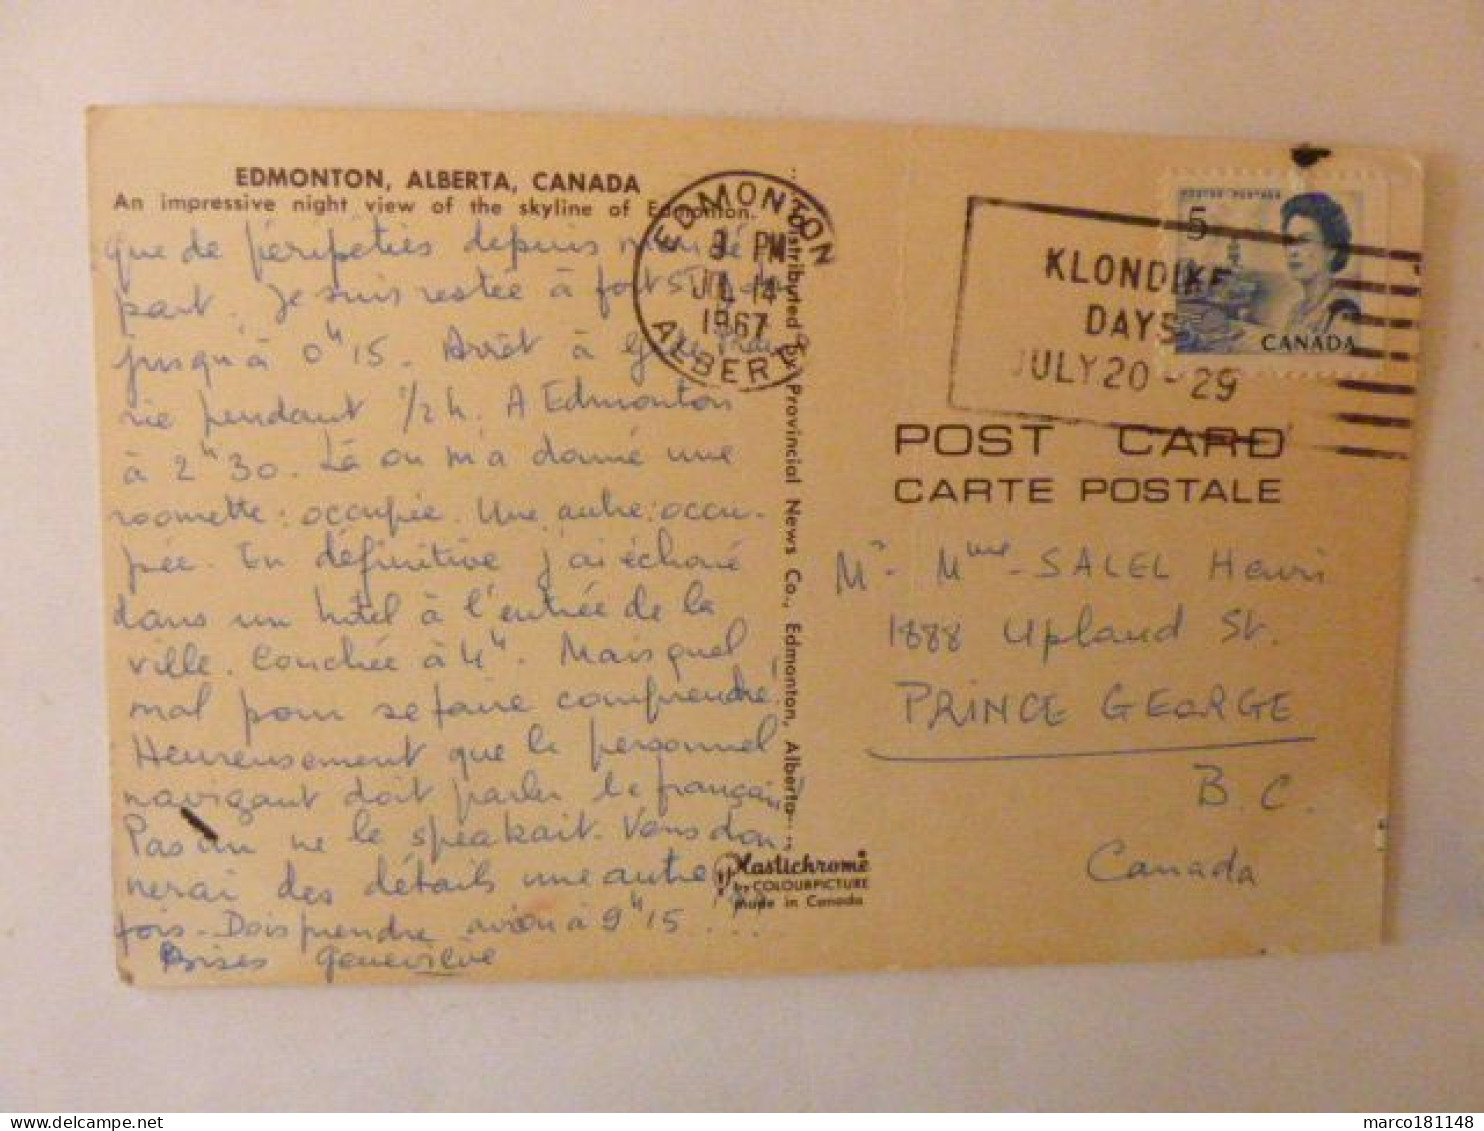 EDMONTON, ALBERTA, CANADA
An impressive night view of the skyline of Edmonton.
que de péripéties depuis mon dé
part. Je suis restée à fort St John
jusqu'à 0ʰ15. Arrêt à Grande Prai
rie pendant 1/2 h. A Edmonton
à 2ʰ30. Là on m'a donné une
roomette: occupée. Une autre: occu-
pée. En définitive j'ai échoué
dans un hôtel à l'entrée de la
ville. Couchée à 4ʰ. Mais quel
mal pour se faire comprendre!
Heureusement que le personnel
navigant doit parler le français!
Pas un ne le speakait. Vous don
nerai des détails une autre
fois. Dois prendre avion à 9ʰ15 ...
Bises Geneviève
EDMONTON
PM
JUL 14
1967
ALBERTA
Distributed by Provincial News Co., Edmonton, Alberta
Plastichrome®
by COLOURPICTURE
made in Canada
KLONDIKE
DAYS
JULY 20-29
POSTES-POSTAGE
5
CANADA
POST CARD
CARTE POSTALE
Mr. Mme. SALEL Henri
1888 Upland St.
PRINCE GEORGE
B.C.
Canada
delcampe.net
marco181148